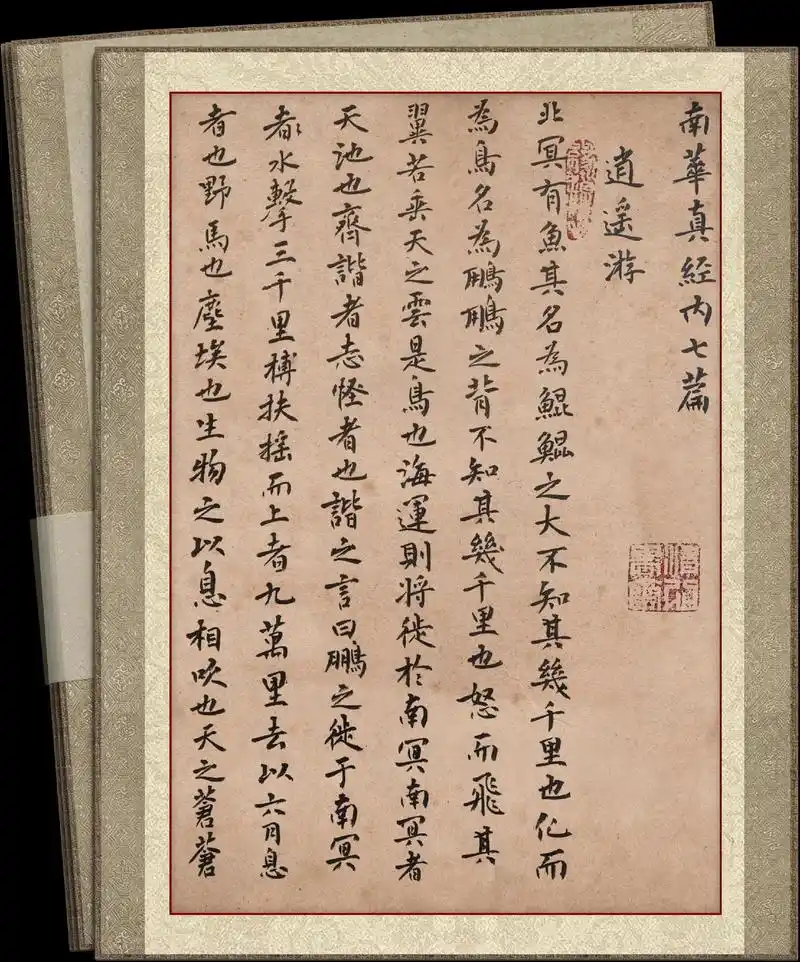 南華真経内七篇
逍遥游
北冥有魚其名為鯤鯤之大不知其幾千里也化而
為鳥名為鵬鵬之背不知其幾千里也怒而飛其
翼若乗天之雲是鳥也海運則将徙於南冥南冥者
天池也齊諧者志怪者也諧之言曰鵬之徙于南冥
者水擊三千里榑扶摇而上者九萬里去以六月息
者也野馬也塵埃也生物之以息相吹也天之蒼蒼